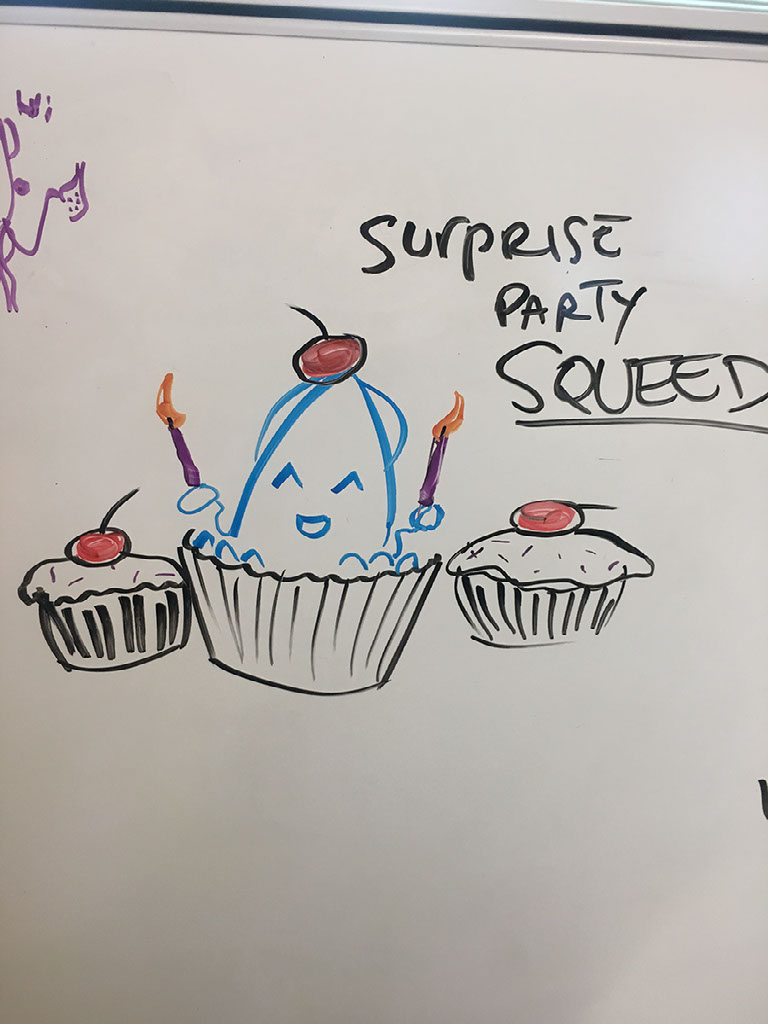 SURPRISE
PARTY
SQUEED